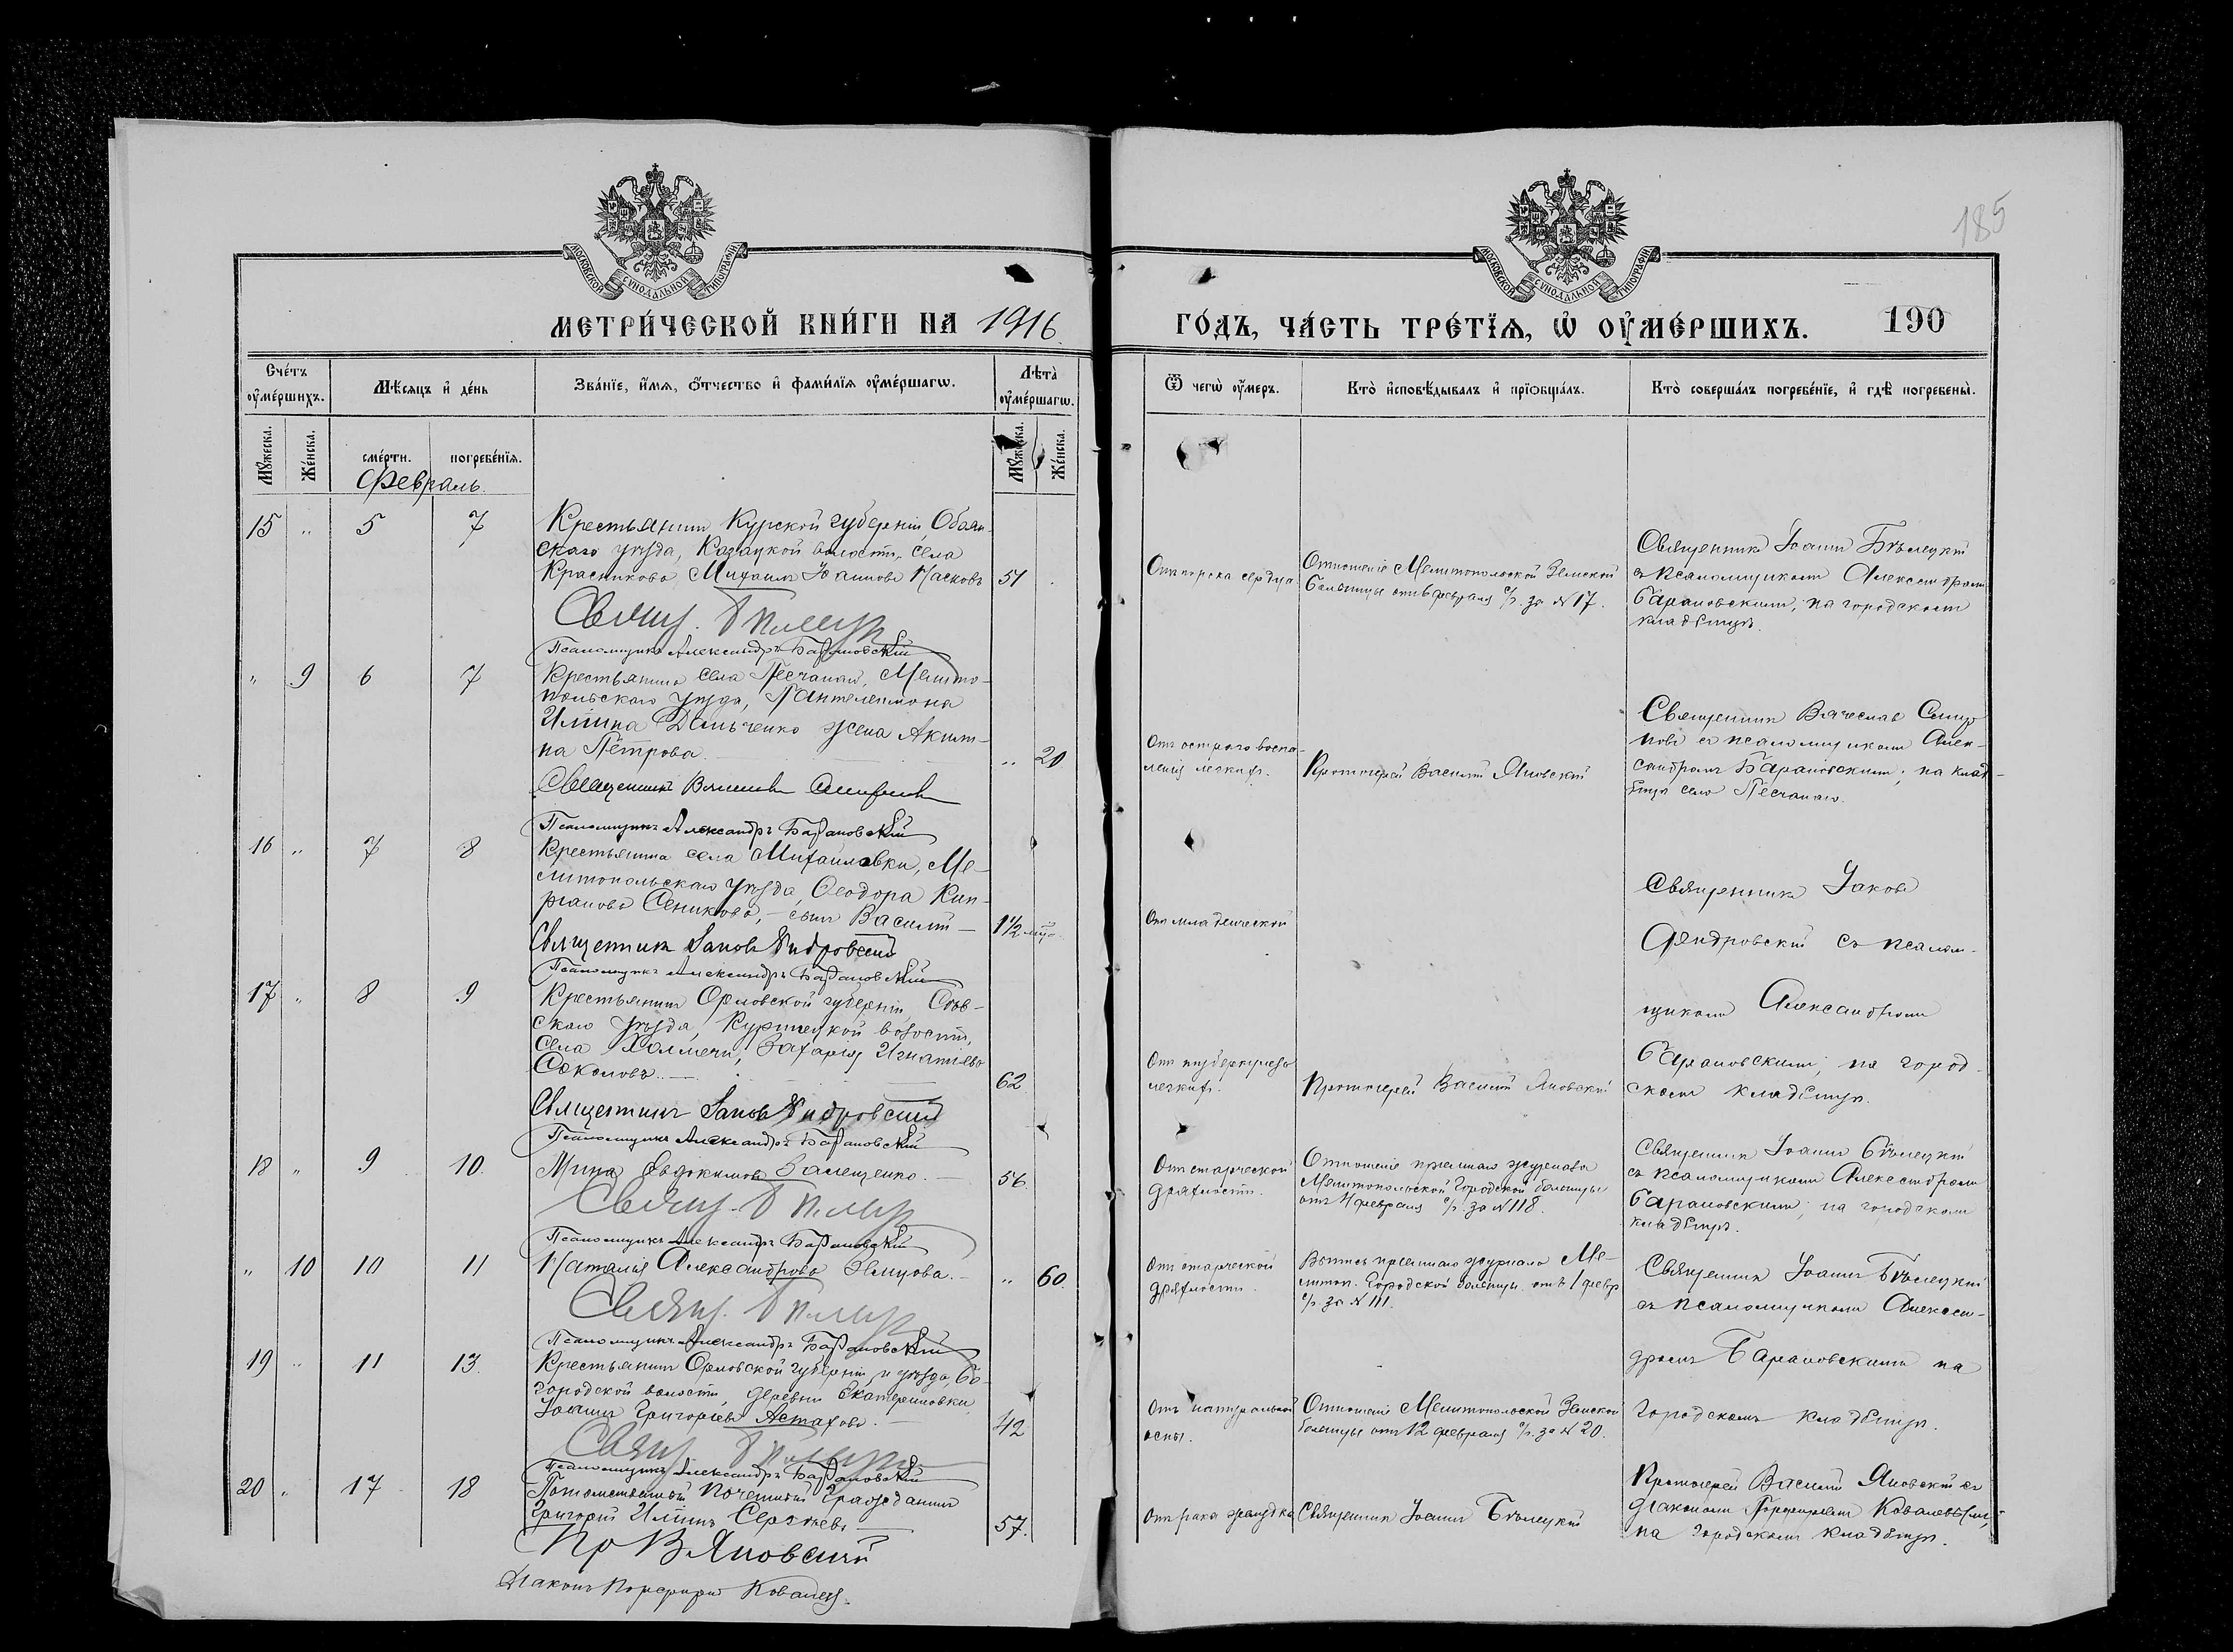 185
МОСКОВСКОЙ СУНОДАЛЬНОЙ ТИПОГРАФІИ
МОСКОВСКОЙ СУНОДАЛЬНОЙ ТИПОГРАФІИ
МЕТРИ́ЧЕСКОЙ КНИ́ГИ НА 1916
ГО́ДЪ, ЧА́СТЬ ТРЕ́ТЇѦ, Ѡ҆ ОУ҆МЕ́РШИХЪ. 190
Сче́тъ оу҆ме́ршихъ.
Мѣ́сѧцъ и҆ де́нь
Зва́нїе, и҆́мѧ, ѻ҆́тчество и҆ фами́лїѧ оу҆ме́ршагѡ.
Лѣ́та оу҆ме́ршагѡ.
Ѿ чегѡ̀ оу҆́меръ.
Кто̀ и҆сповѣ́дывалъ и҆ прїѡбща́лъ.
Кто̀ соверша́лъ погребе́нїе, и҆ гдѣ̀ погребены̀.
Мꙋ́жеска. Же́нска.
сме́рти. погребе́нїѧ.
Мꙋ́жеска. Же́нска.
Февраль.
15 " 5 7
Крестьянинъ Курской губерніи, Обоян-
скаго уѣзда, Казацкой волости, села
Красниково, Михаилъ Іоанновъ 51
Свящ. Бѣлецкій
Псаломщикъ Александръ Барановскій
Отъ порока сердца.
Отношеніе Мелитопольской Земской
больницы отъ 6 февраля с/г. за № 17.
Священникъ Іоаннъ Бѣлецкій
съ псаломщикомъ Александромъ
Барановскимъ, на городскомъ
кладбищѣ.
" 9 6 7
Крестьянина села Песчанаго, Мелито-
польскаго уѣзда, Пантелеимона
Иліина Демченко жена
на Петрова. " 20
Священникъ Вячеславъ Смирновъ
Псаломщикъ Александръ Барановскій
Отъ остраго воспа-
ленія легкихъ.
Протоіерей Василій Яновскій
Священникъ Вячеславъ Смир-
новъ съ псаломщикомъ Алек-
сандромъ Барановскимъ; на клад-
бищѣ села Песчанаго.
16 " 7 8
Крестьянина села Михайловки, Ме-
литопольскаго уѣзда, Ѳеодора Кип-
ріанова Сеникова, – сынъ Василій – 1½ мѣс.
Священникъ Іаковъ Ѳидровскій
Псаломщикъ Александръ Барановскій
Отъ младенческой
Священникъ Іаковъ
съ псалом-
щикомъ Александромъ
Барановскимъ; на город-
скомъ кладбищѣ.
17 " 8 9
Крестьянинъ Орловской губерніи, Сѣв-
скаго уѣзда, волости,
села Холмечи, Захарія Игнатіевъ
Соколовъ. – 62
Священникъ Іаковъ Ѳидровскій
Псаломщикъ Александръ Барановскій
Отъ туберкулеза
легкихъ.
Протоіерей Василій Яновскій
18 " 9 10.
Мина Евдокимовъ – 56.
Свящ. Бѣлецкій
Псаломщикъ Александръ Барановскій
Отъ старческой
дряхлости.
Отношеніе пріемнаго журнала
Мелитопольской Городской больницы
отъ февраля с/г. за № 118.
Священникъ Іоаннъ Бѣлецкій
съ псаломщикомъ Александромъ
Барановскимъ; на городскомъ
кладбищѣ.
" 10 10 11
Наталія Александрова – " 60.
Свящ. Бѣлецкій
Псаломщикъ Александръ Барановскій
Отъ старческой
дряхлости.
Выпись пріемнаго журнала Ме-
литоп. Городской больницы отъ 1 февр.
с/г. за № 111.
Священникъ Іоаннъ Бѣлецкій
съ псаломщикомъ Алексан-
дромъ Барановскимъ на
городскомъ кладбищѣ.
19 " 11 13.
Крестьянинъ Орловской губерніи и уѣзда, Бо-
городской волости, деревни Екатериновки,
Іоаннъ Григоріевъ Астаховъ. – 42
Свящ. Бѣлецкій
Псаломщикъ Александръ Барановскій
Отъ натуральной
оспы.
Отношеніе Мелитопольской Земской
больницы отъ 12 февраля с/г. за № 20.
20 " 17 18
Потомственный Почетный Гражданинъ
Григорій Иліинъ Сергѣевъ – 57.
Пр. В. Яновскій
Діаконъ Порфирій Ковалевъ.
Отъ рака желудка
Священникъ Іоаннъ Бѣлецкій
Протоіерей Василій Яновскій съ
діакономъ Порфиріемъ Ковалевымъ,
на городскомъ кладбищѣ.